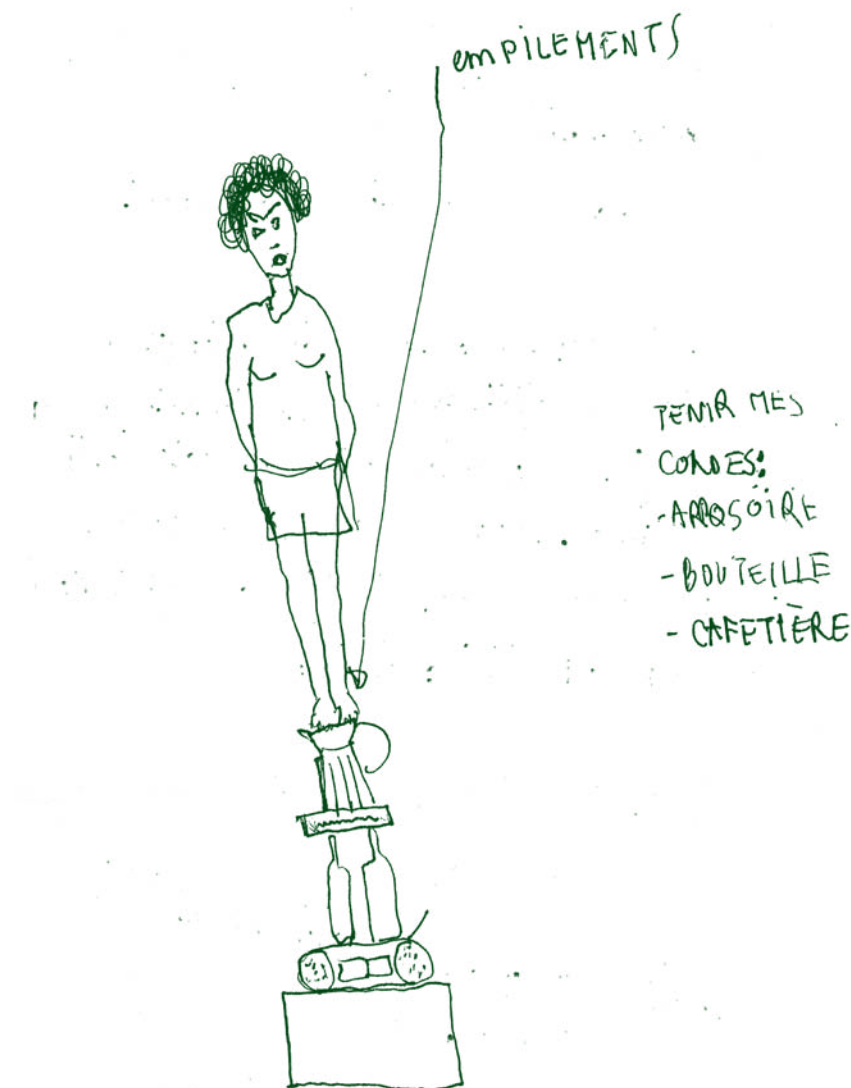 emPiLEMENTS
TENIR MES
CORDES:
-ARROSOIRE
-BOUTEILLE
- CAFETIÈRE